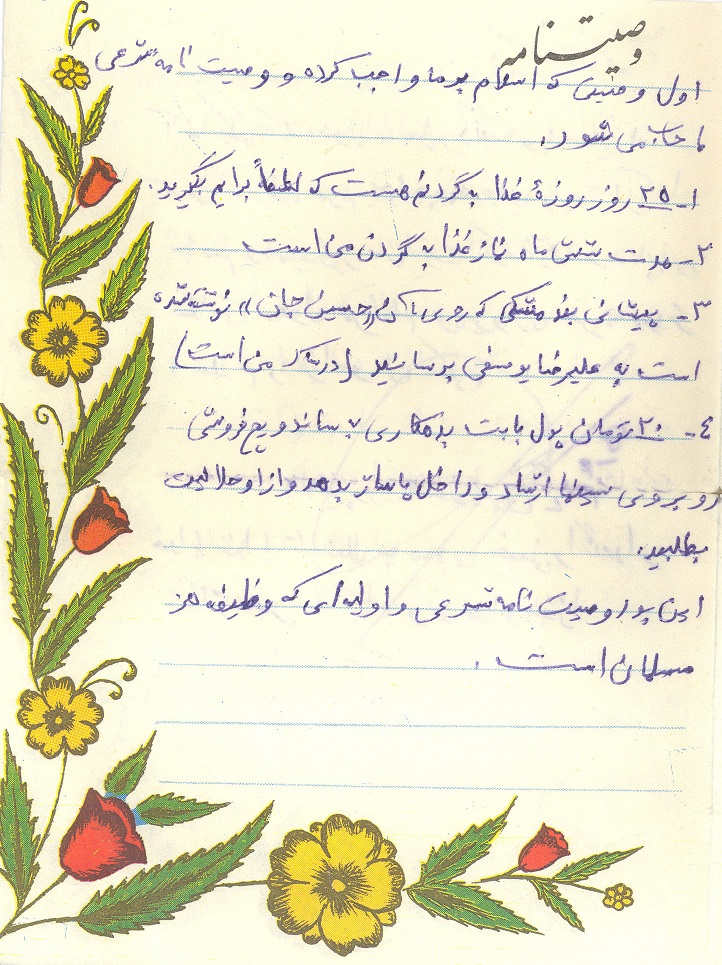 وصیتنامه
اول وصیتی که اسلام بر ما واجب کرده و وصیت نامه شرعی
ما حساب می شود.
۱- ۲۵ روز روزهٔ غذا به گردنم هست که لطفاً برایم بگیرید.
۲- مدت شش ماه نماز غذا به گردن من است
۳- پیشانی بند مشکی که روی آن «حسین جان» نوشته شده
است به علیرضا یوسفی برسانید (در ساک من است)
۴- ۲۰ تومان پول بابت بدهکاری به ساندویچ فروشی
روبروی سینما ارشاد و داخل پاساژ بدهد و از او حلالیت
بطلبید.
این بود وصیت نامه شرعی و اولیه ای که وظیفه هر
مسلمان است.